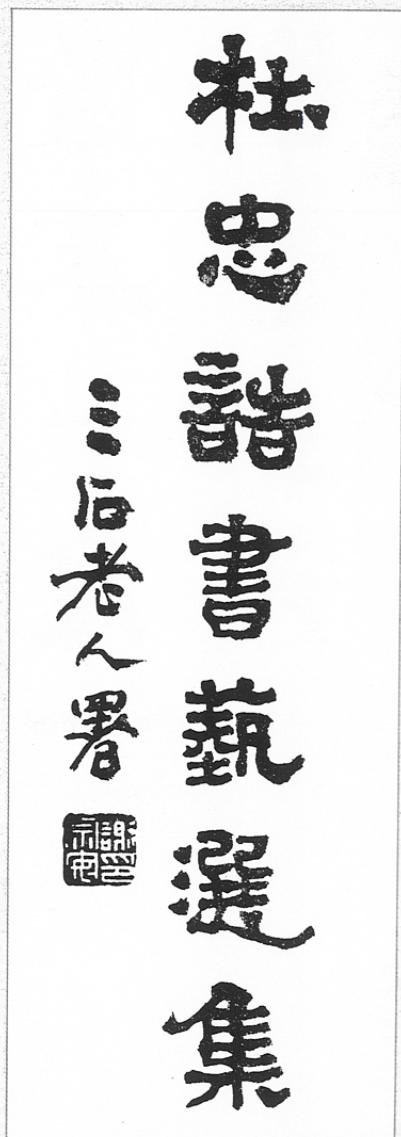 杜忠誥書藝選集
三石老人署
謝宗安印